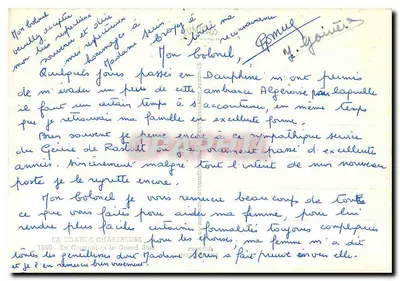 Mon Colonel
veuillez accepter
mon bon souvenir et dire
mes respectueux
hommages à
Madame Serin
Croyez à
toute ma
reconnaissance
Mon Colonel,
Quelques jours passés en Dauphiné m'ont permis
de m'évader un peu de cette ambiance Algéroise pour laquelle
il faut un certain temps à s'accoutumer, en même temps
que je retrouvais ma famille en excellente forme.
Bien souvent je pense encore à ce sympathique service
du Génie de Rastatt où j'y ai vraiment passé d'excellentes
années. Sincèrement malgré tout l'intérêt de mon nouveau
poste je le regrette encore.
Mon Colonel je vous remercie beaucoup de tout
ce que vous faites pour aider ma femme, pour lui
rendre plus faciles certaines formalités toujours compliquées
pour les épouses, ma femme m'a dit
toutes les gentillesses dont Madame Serin a fait preuve envers elle
et je l'en remercie bien vivement.
LA GRANDE CHARTREUSE